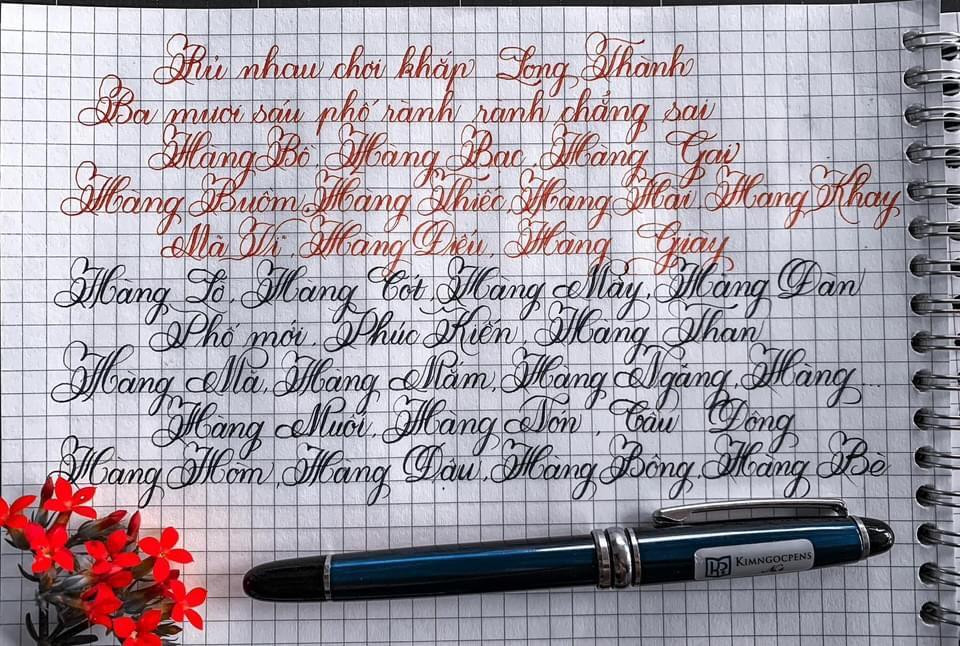 Rủ nhau chơi khắp Long Thành
Ba mươi sáu phố rành rành chẳng sai
Hàng Bồ, Hàng Bạc, Hàng Gai
Hàng Buồm, Hàng Thiếc, Hàng Hài, Hàng Khay
Mã Vĩ, Hàng Điếu, Hàng Giày
Hàng Lờ, Hàng Cót, Hàng Mây, Hàng Đàn
Phố mới, Phúc Kiến, Hàng Than
Hàng Mã, Hàng Mắm, Hàng Ngang, Hàng ...
Hàng Muối, Hàng Nón, Cầu Đông
Hàng Hòm, Hàng Đậu, Hàng Bông, Hàng Bè
KIMNGOCPENS